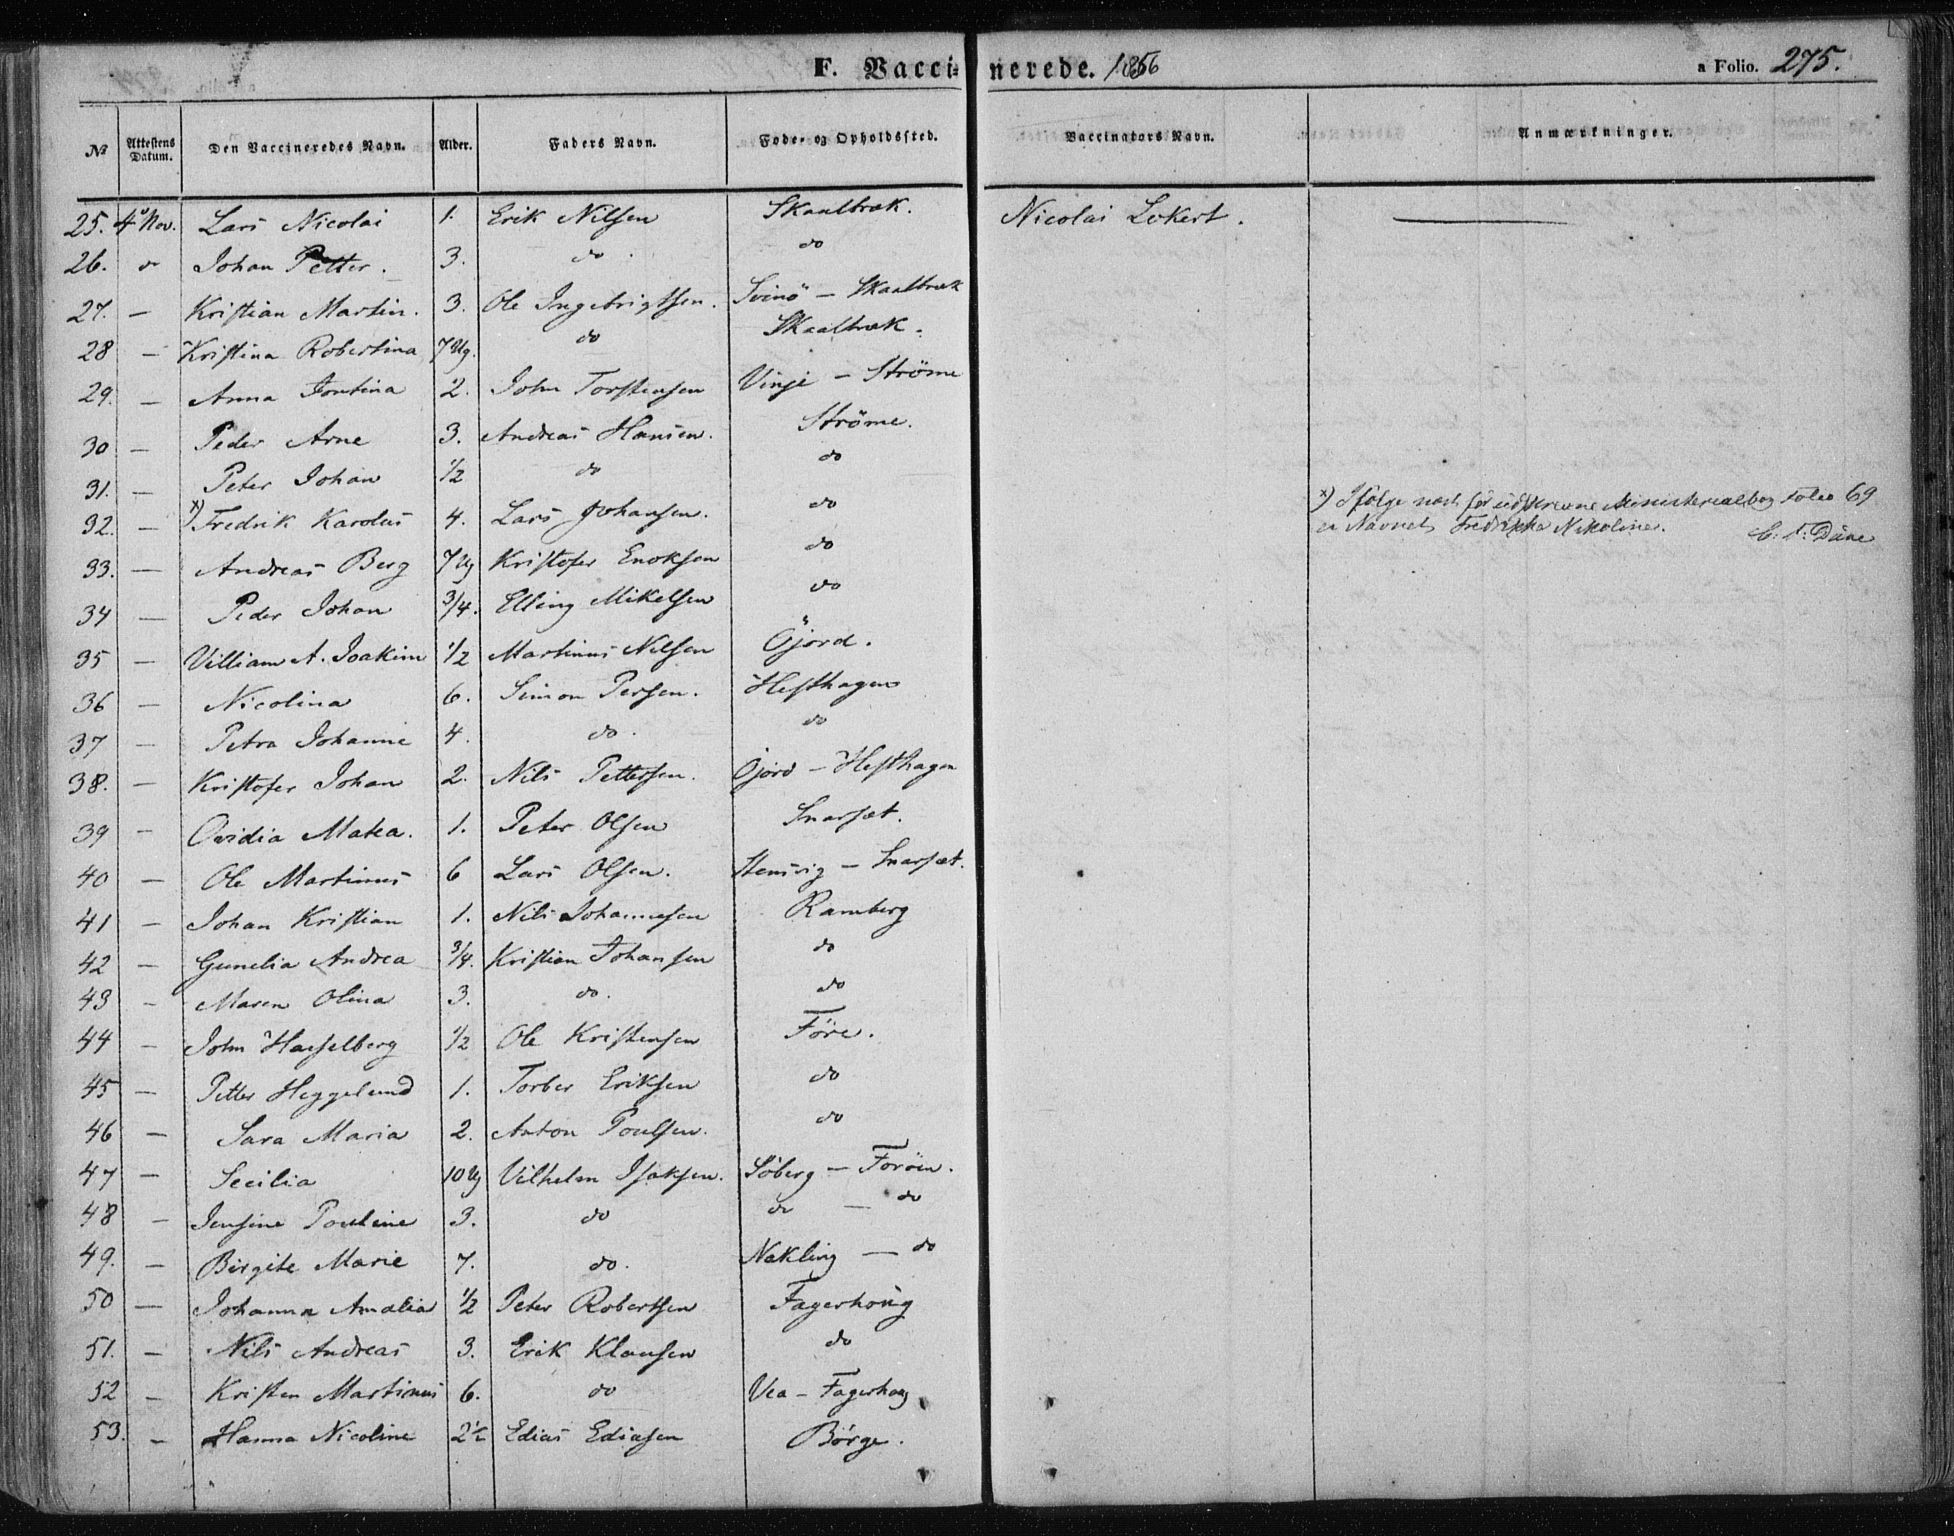 F. Vaccinerede. 1856 a Folio. 275.
№ Attestens Datum. Den Vaccineredes Navn. Alder. Faders Navn. Føde- og Opholdssted. Vaccinators Navn. Anmærkninger.
25. 4 Nov. Lars Nicolai 1. Erik Nilsen Skaalbræk. Nicolai Lokert. —
26. do Johan Petter. 3. do. do
27. — Kristian Martin. 3. Ole Ingebrigtsen. Svinö — Skaalbræk
28 — Kristina Robertina 7 Ug. do Skaalbræk.
29. — Anna Jontina 2. John Torstensen Vinje — Ströme
30 — Peder Arne 3. Andreas Hansen. Ströme.
31. — Peter Johan 1/2 do do
32. — x) Fredrik Karolus 4. Lars Johansen. do x) Ifølge næst før udskrevne Ministerialbog Folio 69
er Navnet Fredrikka Nikoline.
33. — Andreas Berg 7 Ug Kristofer Enoksen do
34 — Peder Johan 3/4. Elling Mikelsen do
35 — Villiam A. Joakim 1/2 Martinus Nilsen Öjord.
36 — Nicolina 6. Simon Persen. Hesthagen
37 — Petra Johanne 4. do. do
38. — Kristofer Johan 2. Nils Pettersen. Öjord — Hesthagen
39 — Ovidia Matea. 1. Peter Olsen Snarset.
40 — Ole Martinus 6 Lars Olsen. Stensvig — Snarset.
41 — Johan Kristian 1. Nils Johannesen Ramberg
42 — Gunelia Andrea 3/4. Kristian Johansen do
43 — Maren Olina 3. do. do
44 — John Hasselberg 1/2 Ole Kristensen Före.
45 — Petter Heggelund 1. Torber Eriksen do
46 — Sara Maria 2. Anton Poulsen. do
47 — Secilia 10 Ug Vilhelm Isaksen. Söberg — Foröen.
48 — Jensine Pouline 3. do do — do
49. — Birgite Marie 7. do. Nøkling — do
50 — Johanna Amalia 1/2 Peter Robertsen Fagerhoug
51. — Nils Andreas 3. Erik Klausen do
52 — Kristen Martinus 6. do Vea — Fagerhoug
53. — Hanna Nicoline 2½ Edias Ediasen Börge.